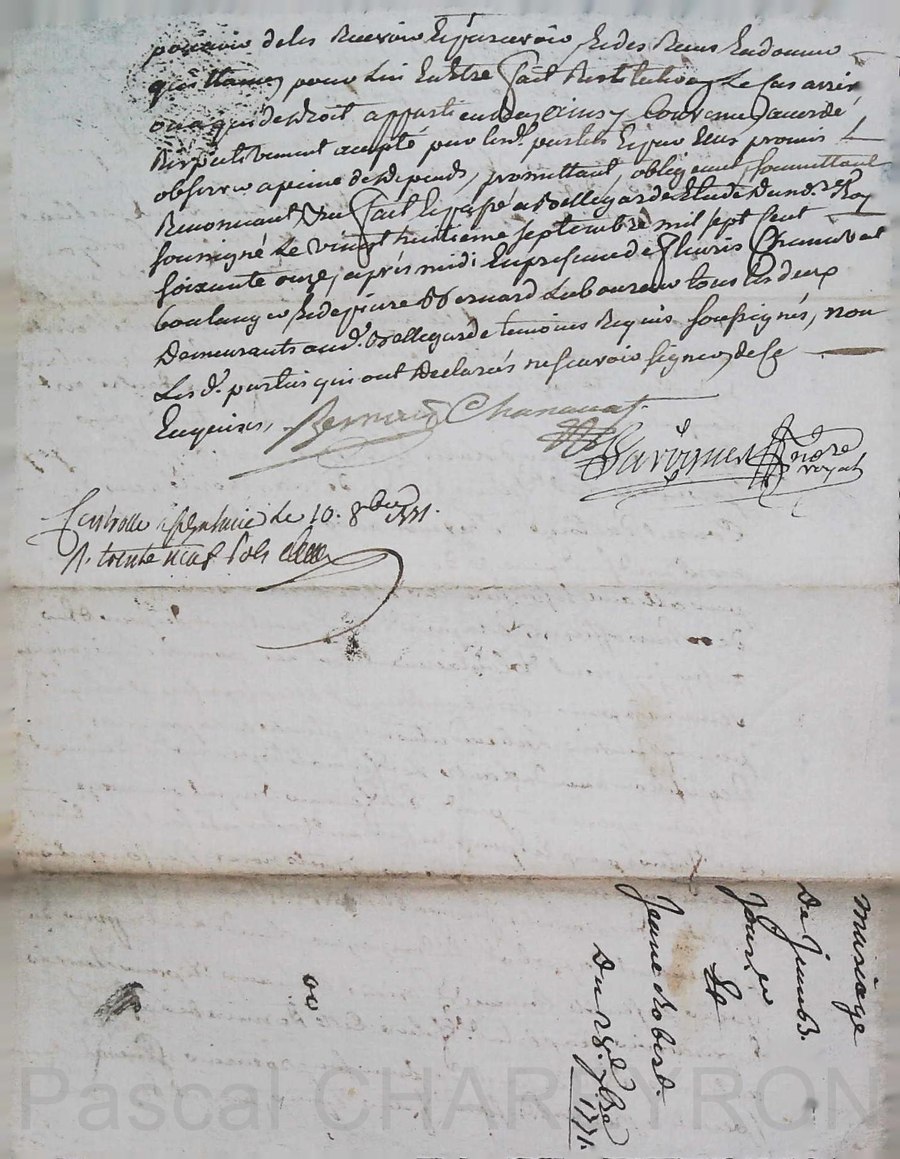 pouvoir de les Recevoir Et percevoir Et des Reçus En donner
quittance, pour Lui En Etre fait Restitution Le Cas arriv
ou a qui de droit appartiendra, ainsy Convenu, accordé
Respectivement accepté par Lesd. parties Et par Eux promis
observer a peine de dépends, promettant, obligeant, soumettant
Renonçant &a fait Et passé a Bellegarde Etude dud. Roy
soussigné Le vingt huitieme septembre mil sept Cent
soixante onze, après midi En presence de fleuris Chanavat
boulanger Et de pierre Bernard Laboureur tous Les deux
Demeurants aud. Bellegarde temoins Requis soussignés, non
Les d. parties qui ont Déclarés ne scavoir signer, de ce
Enquises,
Bernard Chanavat
no.re
royal
Controllé le 10. 8bre 1771.
R. trente neuf sols
mariage
De Jean B.
Et
Jeane
Du 28e 7bre
1771.
Pascal CHAREYRON